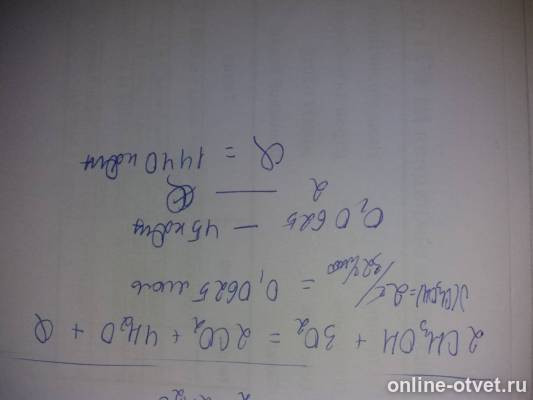 2CH₃OH + 3O₂ = 2CO₂ + 4H₂O + Q
ν(CH₃OH) = 2г/32г/моль = 0,0625 моль
0,0625 — 45 кДж
2 — Q
Q = 1440 кДж
online-otvet.ru